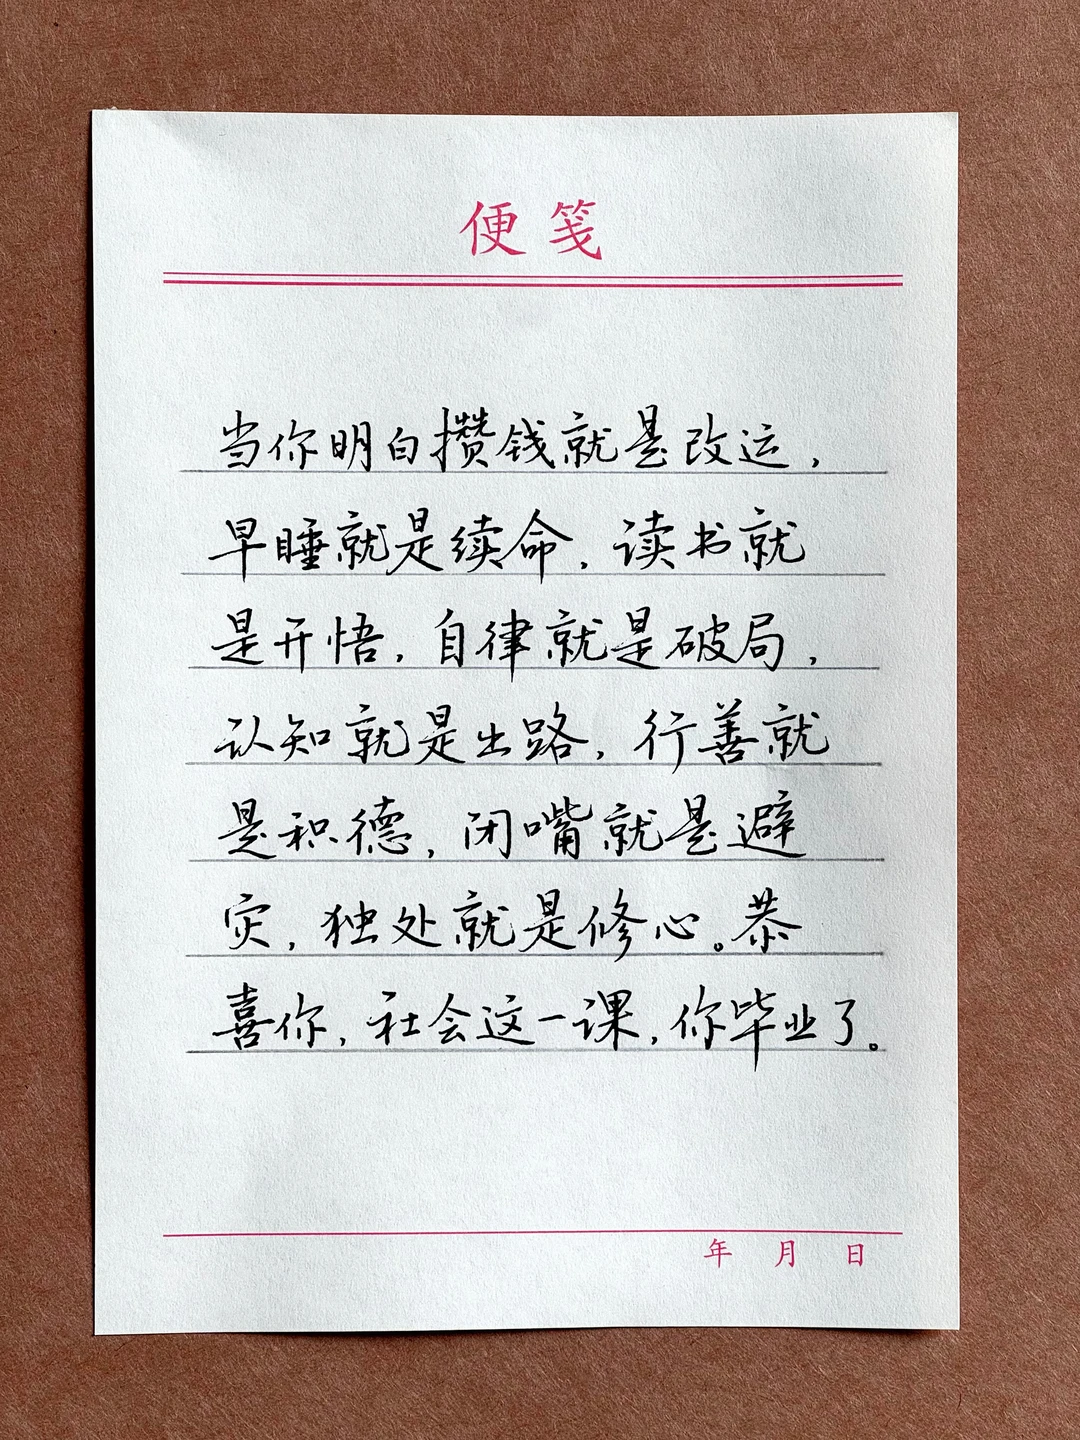 便笺
当你明白攒钱就是改运，
早睡就是续命，读书就
是开悟，自律就是破局，
认知就是出路，行善就
是积德，闭嘴就是避
灾，独处就是修心。恭
喜你，社会这一课，你毕业了。
年 月 日